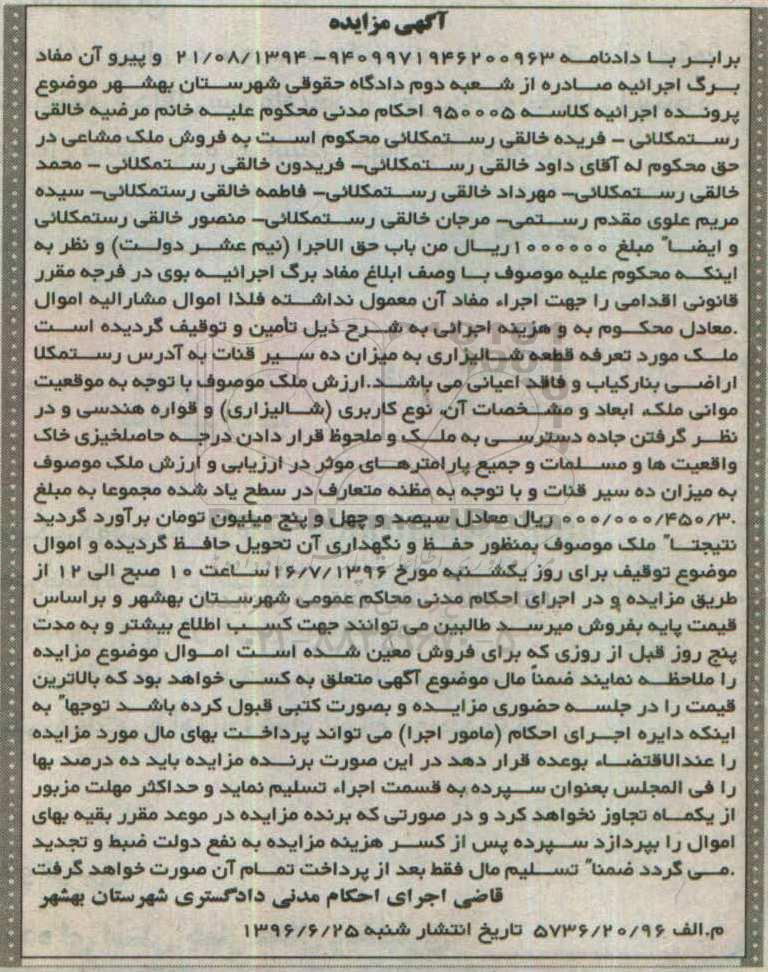 آگهی مزایده
برابر با دادنامه ۹۴۰۹۹۷۱۹۴۶۲۰۰۹۶۳- ۲۱/۰۸/۱۳۹۴ و پیرو آن مفاد
برگ اجرائیه صادره از شعبه دوم دادگاه حقوقی شهرستان بهشهر موضوع
پرونده اجرائیه کلاسه ۹۵۰۰۰۵ احکام مدنی محکوم علیه خانم مرضیه خالقی
رستمکلائی - فریده خالقی رستمکلائی محکوم است به فروش ملک مشاعی در
حق محکوم له آقای داود خالقی رستمکلائی- فریدون خالقی رستمکلائی - محمد
خالقی رستمکلائی- مهرداد خالقی رستمکلائی- فاطمه خالقی رستمکلائی- سیده
مریم علوی مقدم رستمی- مرجان خالقی رستمکلائی- منصور خالقی رستمکلائی
و ایضا" مبلغ ۱۰۰۰۰۰۰ریال من باب حق الاجرا (نیم عشر دولت) و نظر به
اینکه محکوم علیه موصوف با وصف ابلاغ مفاد برگ اجرائیه بوی در فرجه مقرر
قانونی اقدامی را جهت اجراء مفاد آن معمول نداشته فلذا اموال مشارالیه اموال
.معادل محکوم به و هزینه اجرائی به شرح ذیل تأمین و توقیف گردیده است
ملک مورد تعرفه قطعه شالیزاری به میزان ده سیر قنات به آدرس رستمکلا
اراضی بنارکیاب و فاقد اعیانی می باشد.ارزش ملک موصوف با توجه به موقعیت
موانی ملک، ابعاد و مشخصات آن، نوع کاربری (شالیزاری) و قواره هندسی و در
نظر گرفتن جاده دسترسی به ملک و ملحوظ قرار دادن درجه حاصلخیزی خاک
واقعیت ها و مسلمات و جمیع پارامترهای موثر در ارزیابی و ارزش ملک موصوف
به میزان ده سیر قنات و با توجه به مظنه متعارف در سطح یاد شده مجموعا به مبلغ
.۰۰۰/۰۰۰/۴۵۰/۳ ریال معادل سیصد و چهل و پنج میلیون تومان برآورد گردید
نتیجتا" ملک موصوف بمنظور حفظ و نگهداری آن تحویل حافظ گردیده و اموال
موضوع توقیف برای روز یکشنبه مورخ ۱۶/۷/۱۳۹۶ساعت ۱۰ صبح الی ۱۲ از
طریق مزایده و در اجرای احکام مدنی محاکم عمومی شهرستان بهشهر و براساس
قیمت پایه بفروش میرسد طالبین می توانند جهت کسب اطلاع بیشتر و به مدت
پنج روز قبل از روزی که برای فروش معین شده است اموال موضوع مزایده
را ملاحظه نمایند ضمناً مال موضوع آگهی متعلق به کسی خواهد بود که بالاترین
قیمت را در جلسه حضوری مزایده و بصورت کتبی قبول کرده باشد توجها" به
اینکه دایره اجرای احکام (مامور اجرا) می تواند پرداخت بهای مال مورد مزایده
را عندالاقتضاء بوعده قرار دهد در این صورت برنده مزایده باید ده درصد بها
را فی المجلس بعنوان سپرده به قسمت اجراء تسلیم نماید و حداکثر مهلت مزبور
از یکماه تجاوز نخواهد کرد و در صورتی که برنده مزایده در موعد مقرر بقیه بهای
اموال را بپردازد سپرده پس از کسر هزینه مزایده به نفع دولت ضبط و تجدید
.می گردد ضمنا" تسلیم مال فقط بعد از پرداخت تمام آن صورت خواهد گرفت
قاضی اجرای احکام مدنی دادگستری شهرستان بهشهر
م.الف ۵۷۳۶/۲۰/۹۶ تاریخ انتشار شنبه ۱۳۹۶/۶/۲۵